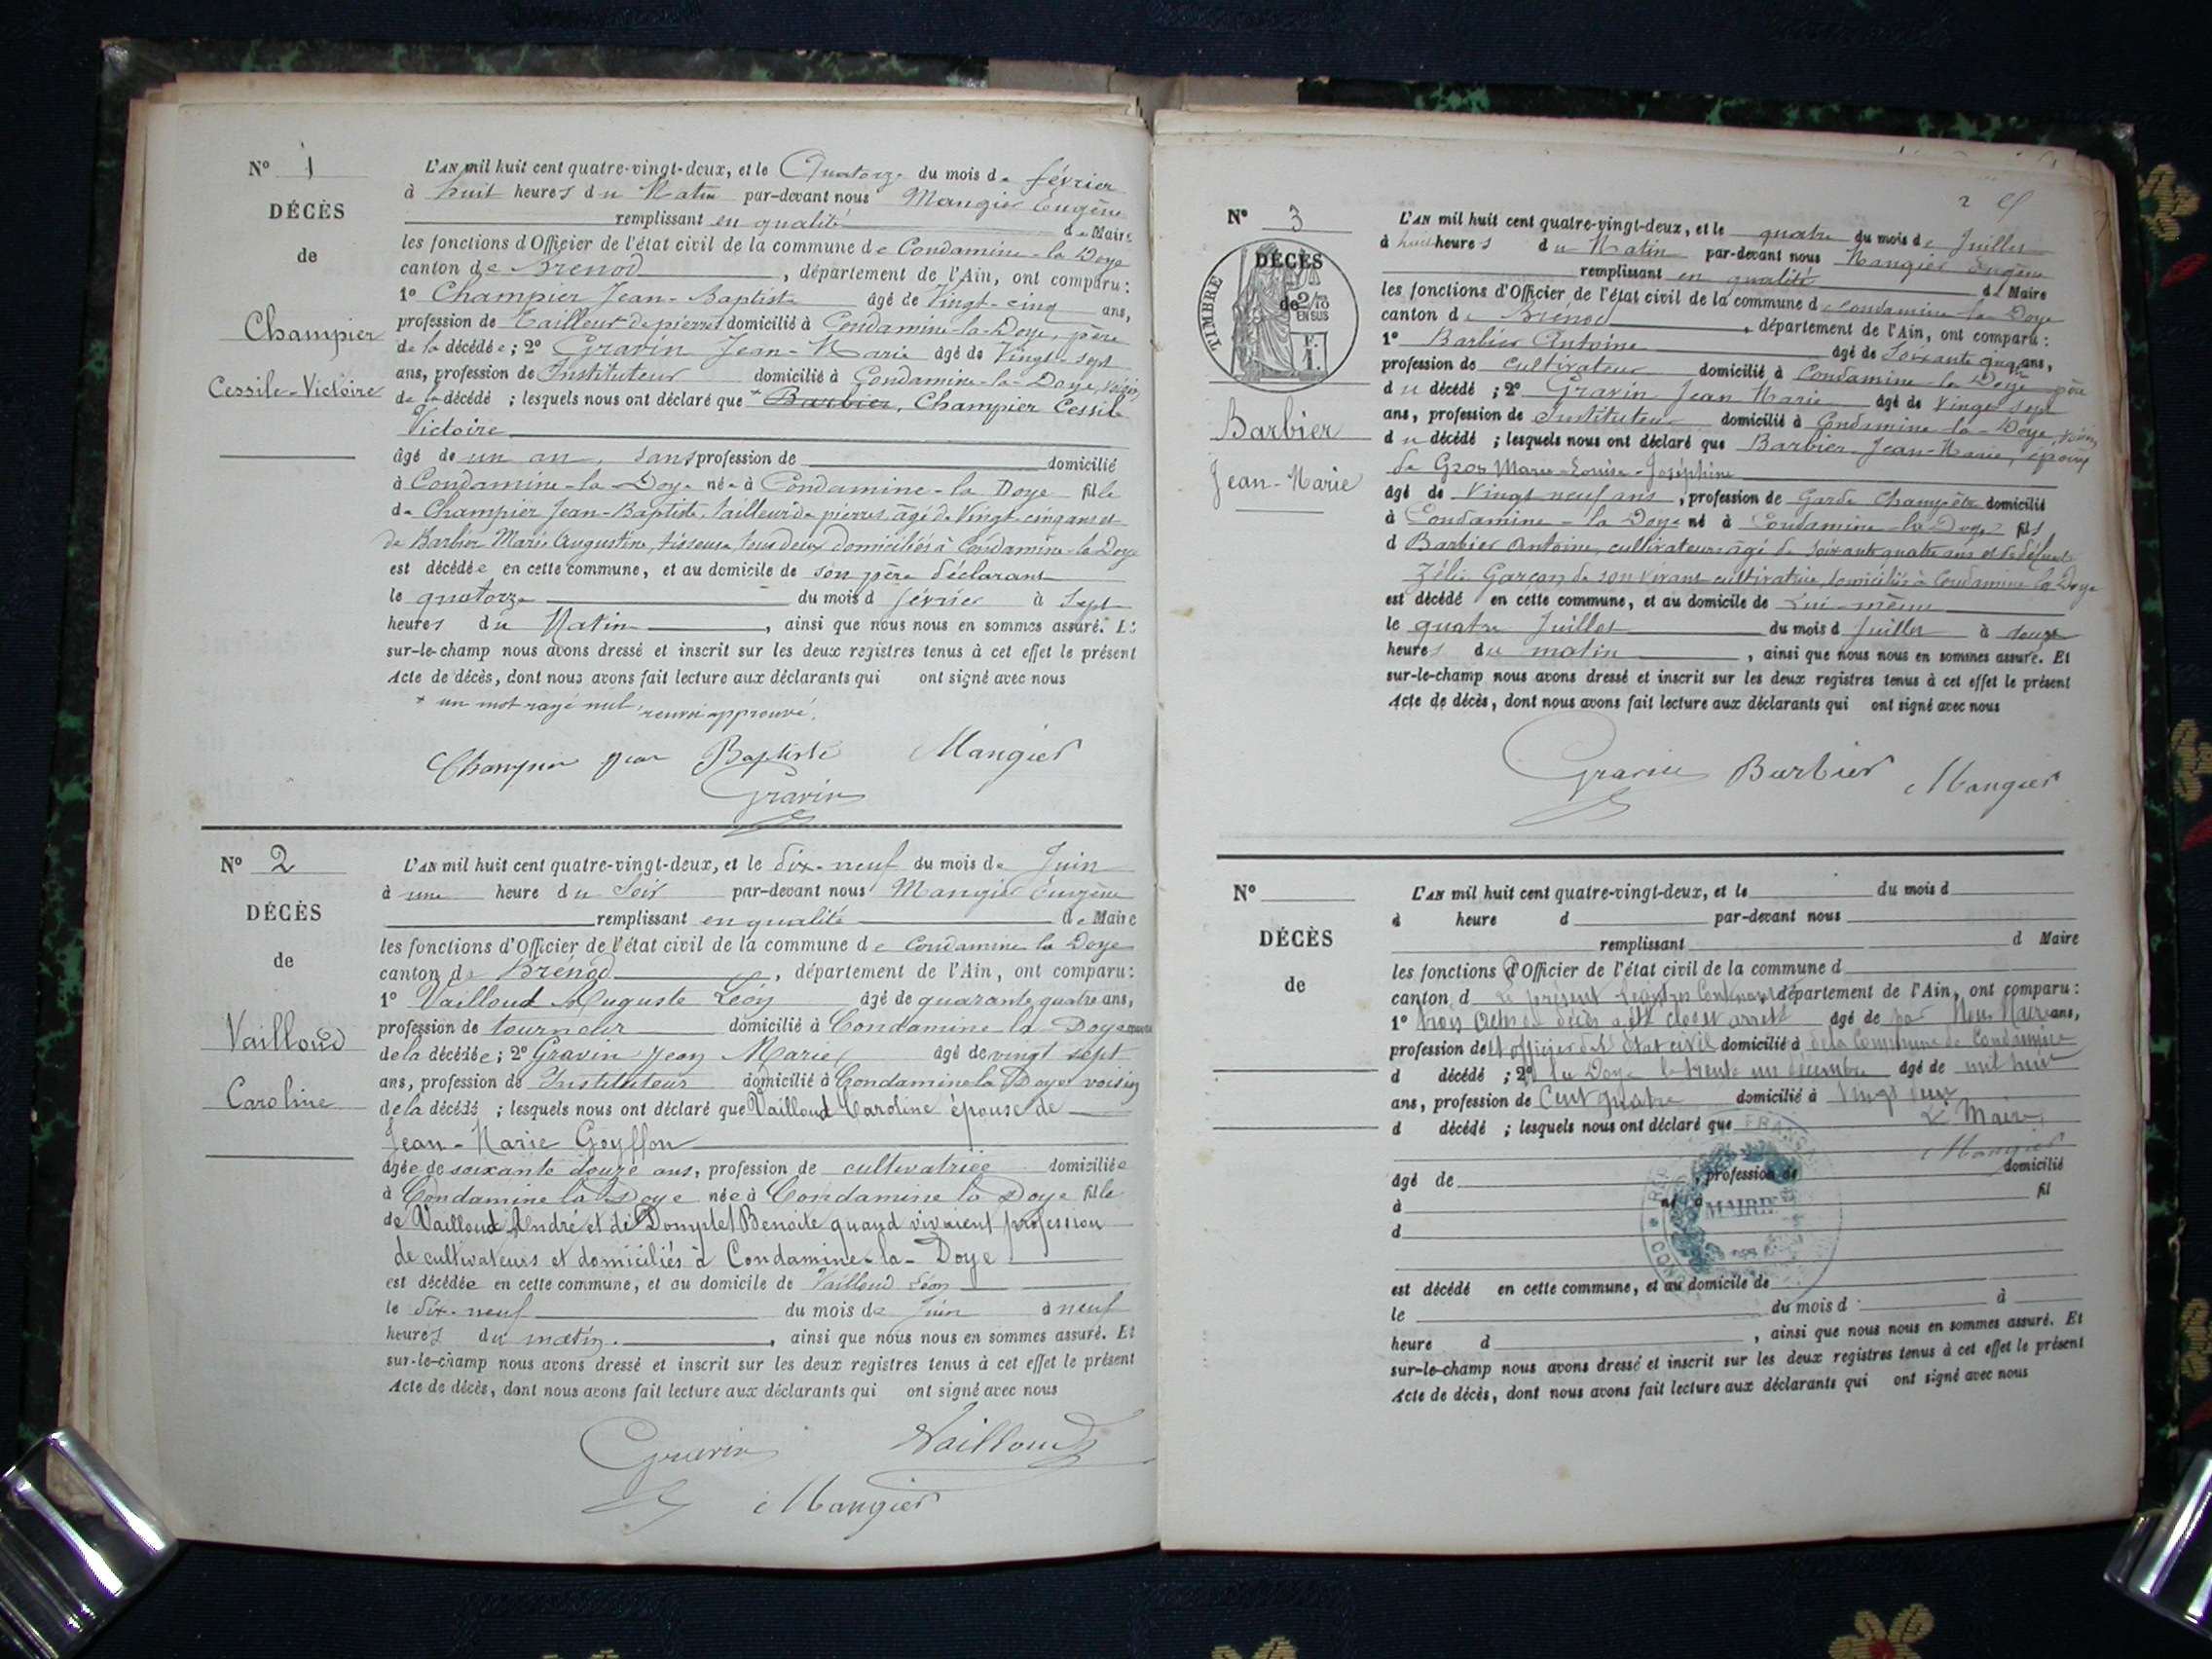 N° 1
DÉCÈS
de
Champier
Cessile-Victoire
L'AN mil huit cent quatre-vingt-deux, et le Quatorze du mois de février
à huit heures du Matin par-devant nous Mangier Eugène
remplissant en qualité de Maire
les fonctions d'Officier de l'état civil de la commune de Condamine-la-Doye
canton de Brenod, département de l'Ain, ont comparu:
1° Champier Jean-Baptiste âgé de Vingt-cinq ans,
profession de Tailleur de pierres domicilié à Condamine-la-Doye, père
de la décédée; 2° Gravin Jean-Marie âgé de Vingt-sept
ans, profession de Instituteur domicilié à Condamine-la-Doye, voisin
de la décédé ; lesquels nous ont déclaré que * Barbier, Champier Cessile
Victoire
âgé de un an, sans profession de domicilié
à Condamine-la-Doye née à Condamine-la Doye fille
de Champier Jean-Baptiste, tailleur de pierres, âgé de Vingt-cinq ans et
de Barbier Marie Augustine, tisseuse, tous deux domiciliés à Condamine-la-Doye
est décédée en cette commune, et au domicile de son père déclarant
le quatorze du mois d février à Sept
heures du Matin, ainsi que nous nous en sommes assuré. Et
sur-le-champ nous avons dressé et inscrit sur les deux registres tenus à cet effet le présent
Acte de décès, dont nous avons fait lecture aux déclarants qui ont signé avec nous
* un mot rayé nul, renvoi approuvé.
Champier Jean Baptiste Mangier
Gravin
N° 2
DÉCÈS
de
Vailloud
Caroline
L'AN mil huit cent quatre-vingt-deux, et le dix-neuf du mois de Juin
à une heure du Soir par-devant nous Mangier Eugène
remplissant en qualité de Maire
les fonctions d'Officier de l'état civil de la commune de Condamine la Doye
canton de Brénod, département de l'Ain, ont comparu:
1° Vailloud Auguste Léon âgé de quarante quatre ans,
profession de tourneur domicilié à Condamine la Doye
de la décédée; 2° Gravin Jean Marie âgé de vingt sept
ans, profession de Instituteur domicilié à Condamine la Doye voisin
de la décédé ; lesquels nous ont déclaré que Vailloud Caroline épouse de
Jean-Marie Goyffon
âgée de soixante douze ans, profession de cultivatrice domiciliée
à Condamine la Doye née à Condamine la Doye fille
de Vailloud André et de Domplet Benoite quand vivaient profession
de cultivateurs et domiciliés à Condamine-la-Doye
est décédée en cette commune, et au domicile de Vailloud Léon
le dix-neuf du mois de Juin à neuf
heures du matin, ainsi que nous nous en sommes assuré. Et
sur-le-champ nous avons dressé et inscrit sur les deux registres tenus à cet effet le présent
Acte de décès, dont nous avons fait lecture aux déclarants qui ont signé avec nous
Gravin Vailloud
Mangier
2
N° 3
TIMBRE
DÉCÈS
de
2/10
EN SUS
F.
1.
Barbier
Jean-Marie
L'AN mil huit cent quatre-vingt-deux, et le quatre du mois de Juillet
à huit heures du Matin par-devant nous Mangier Eugène
remplissant en qualité de Maire
les fonctions d'Officier de l'état civil de la commune de Condamine la Doye
canton de Brenod, département de l'Ain, ont comparu:
1° Barbier Antoine âgé de Soixante cinq ans,
profession de cultivateur domicilié à Condamine-la Doye père
du décédé ; 2° Gravin Jean Marie âgé de Vingt sept
ans, profession de Instituteur domicilié à Condamine-la-Doye, voisin
du décédé ; lesquels nous ont déclaré que Barbier Jean-Marie, époux
de Gros Marie-Louise-Joséphine
âgé de Vingt neuf ans, profession de Garde Champêtre domicilié
à Condamine-la Doye né à Condamine-la Doye fils
d Barbier Antoine, cultivateur âgé de soixante quatre ans et de défunte
Zélie Garçon de son vivant cultivatrice, domiciliés à Condamine-la-Doye
est décédé en cette commune, et au domicile de Lui-même
le quatre Juillet du mois d Juillet à deux
heures du matin, ainsi que nous nous en sommes assuré. Et
sur-le-champ nous avons dressé et inscrit sur les deux registres tenus à cet effet le présent
Acte de décès, dont nous avons fait lecture aux déclarants qui ont signé avec nous
Gravin Barbier Mangier
N°
DÉCÈS
de
L'AN mil huit cent quatre-vingt-deux, et le du mois d
à heure d par-devant nous
remplissant d Maire
les fonctions d'Officier de l'état civil de la commune d
canton d Le présent Registre Contenant département de l'Ain, ont comparu:
1° trois Actes de décès a été clos et arrêté âgé de par Nous Maire ans,
profession de et officier de l'état civil domicilié à de la Commune de Condamine
d décédé ; 2° la Doye le trente un décembre âgé de mil huit
ans, profession de Cent quatre domicilié à Vingt deux
d décédé ; lesquels nous ont déclaré que Le Maire
Mangier
âgé de , profession de domicilié
à né à fil
d
MAIRIE
est décédé en cette commune, et au domicile de
le du mois d à
heure d , ainsi que nous nous en sommes assuré. Et
sur-le-champ nous avons dressé et inscrit sur les deux registres tenus à cet effet le présent
Acte de décès, dont nous avons fait lecture aux déclarants qui ont signé avec nous